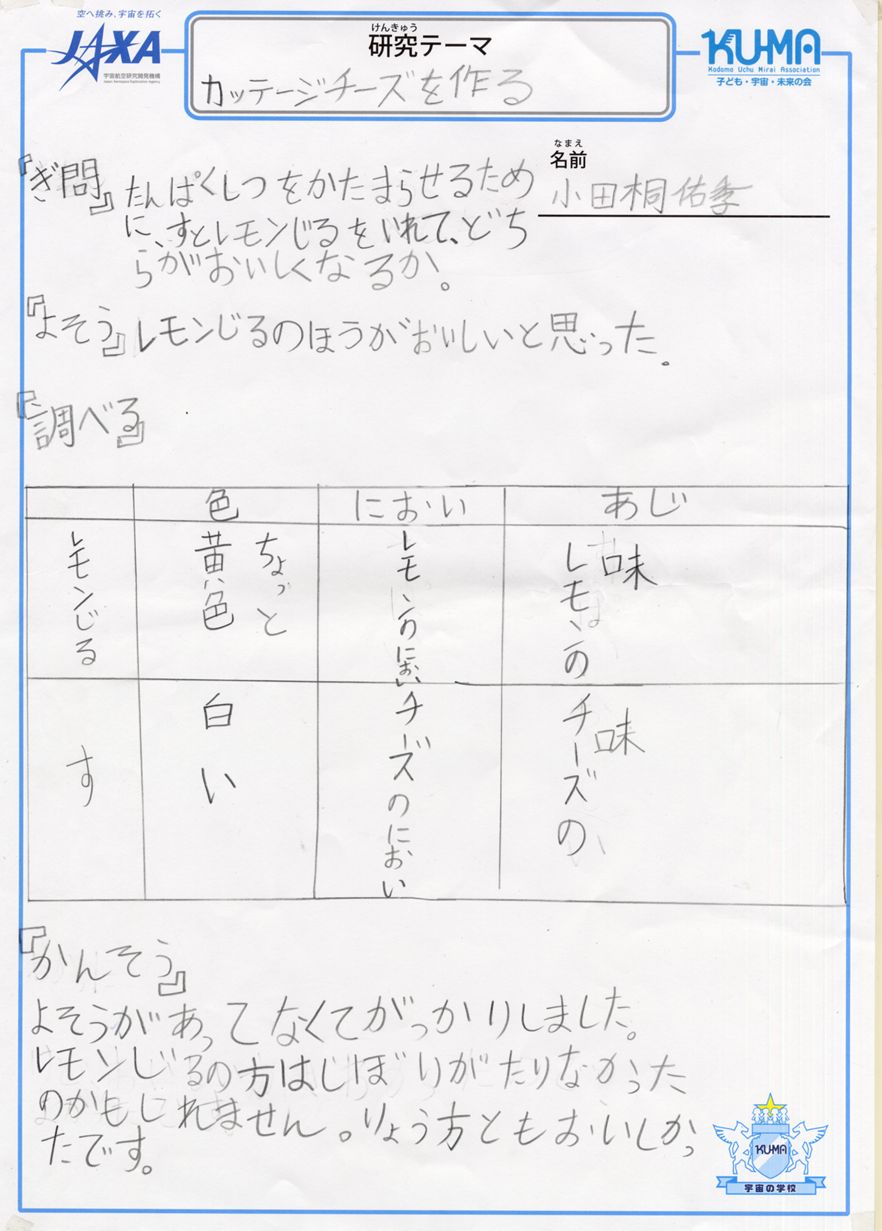 空へ挑み、宇宙を拓く
JAXA
宇宙航空研究開発機構
Japan Aerospace Exploration Agency
けんきゅう
研究テーマ
カッテージチーズを作る
KU-MA
Kodomo Uchu Mirai Association
子ども・宇宙・未来の会
なまえ
名前
小田桐佑季
『ぎ問』
たんぱくしつをかたまらせるため
に、すとレモンじるをいれて、どち
らがおいしくなるか。
『よそう』レモンじるのほうがおいしいと思った。
『調べる』
色 におい あじ
レモンじる ちょっと黄色 レモンのにおい レモンの味
す 白い チーズのにおい チーズの味
『かんそう』
よそうがあってなくてがっかりしました。
レモンじるの方はしぼりがたりなかった
のかもしれません。りょう方ともおいしかっ
たです。
KU-MA
宇宙の学校